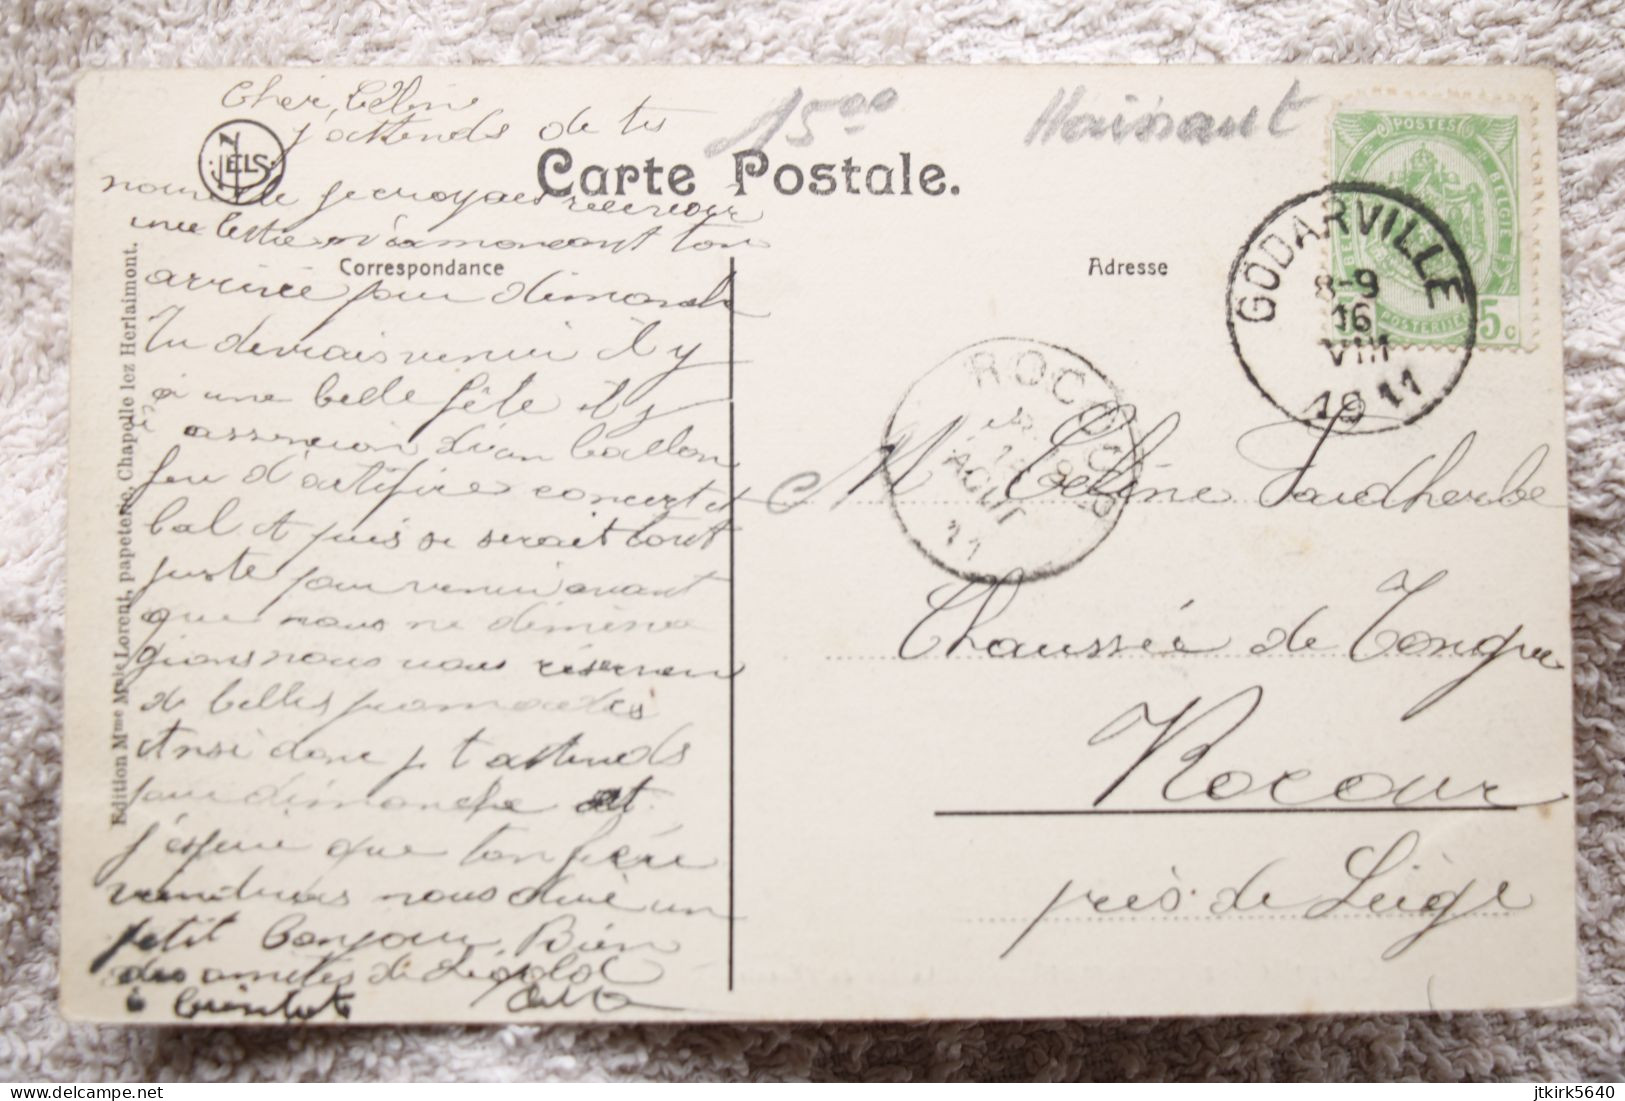 Cher Céline
j'attends de tes
nouvelle je croyais recevoir
une lettre m'annoncant ton
arrivée pour dimanche
Tu devrais venir il y
à une belle fête il y
à assencion d'un ballon
feu d'artifice concert et
bal et puis se serait tout
juste pour venir avant
que nous ne déména
gions nous nous réserven
de belles promenades
Ainsi donc je t'attends
pour dimanche et
j'espère que ton frère
viendrais nous dire un
petit bonjour Bien
des amitiés de Léopold
à bientôt
NELS
1500
Hainaut
Carte Postale.
Correspondance
Adresse
Edition Mme Lorent, papeterie, Chapelle lez Herlaimont.
POSTES
BELGIE
POSTERIJEN
5 c
GODARVILLE
8-9
16
VIII
1911
ROCOUR
AOUT
11
M Céline Vandherbe
Chaussée de Tongre
Rocour
près de Liège
jtkirk5640